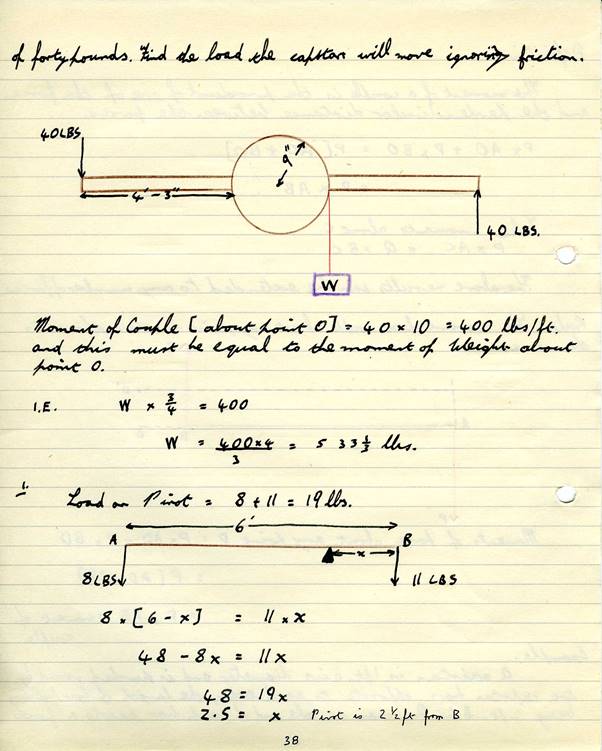 of forty pounds. Find the load the capstan will move ignoring friction.
40 LBS
9"
4' - 3"
40 LBS.
W
Moment of Couple [about point O] = 40 × 10 = 400 lbs/ft.
and this must be equal to the moment of Weight about
point O.
I.E. W × 3/4 = 400
W = 400×4/3 = 533 1/3 lbs.
1. Load on Pivot = 8 + 11 = 19 lbs.
6'
A B
x
8 LBS 11 LBS
8 × [6 - x] = 11 × x
48 - 8x = 11x
48 = 19x
2.5 = x Pivot is 2 1/2 ft from B
38